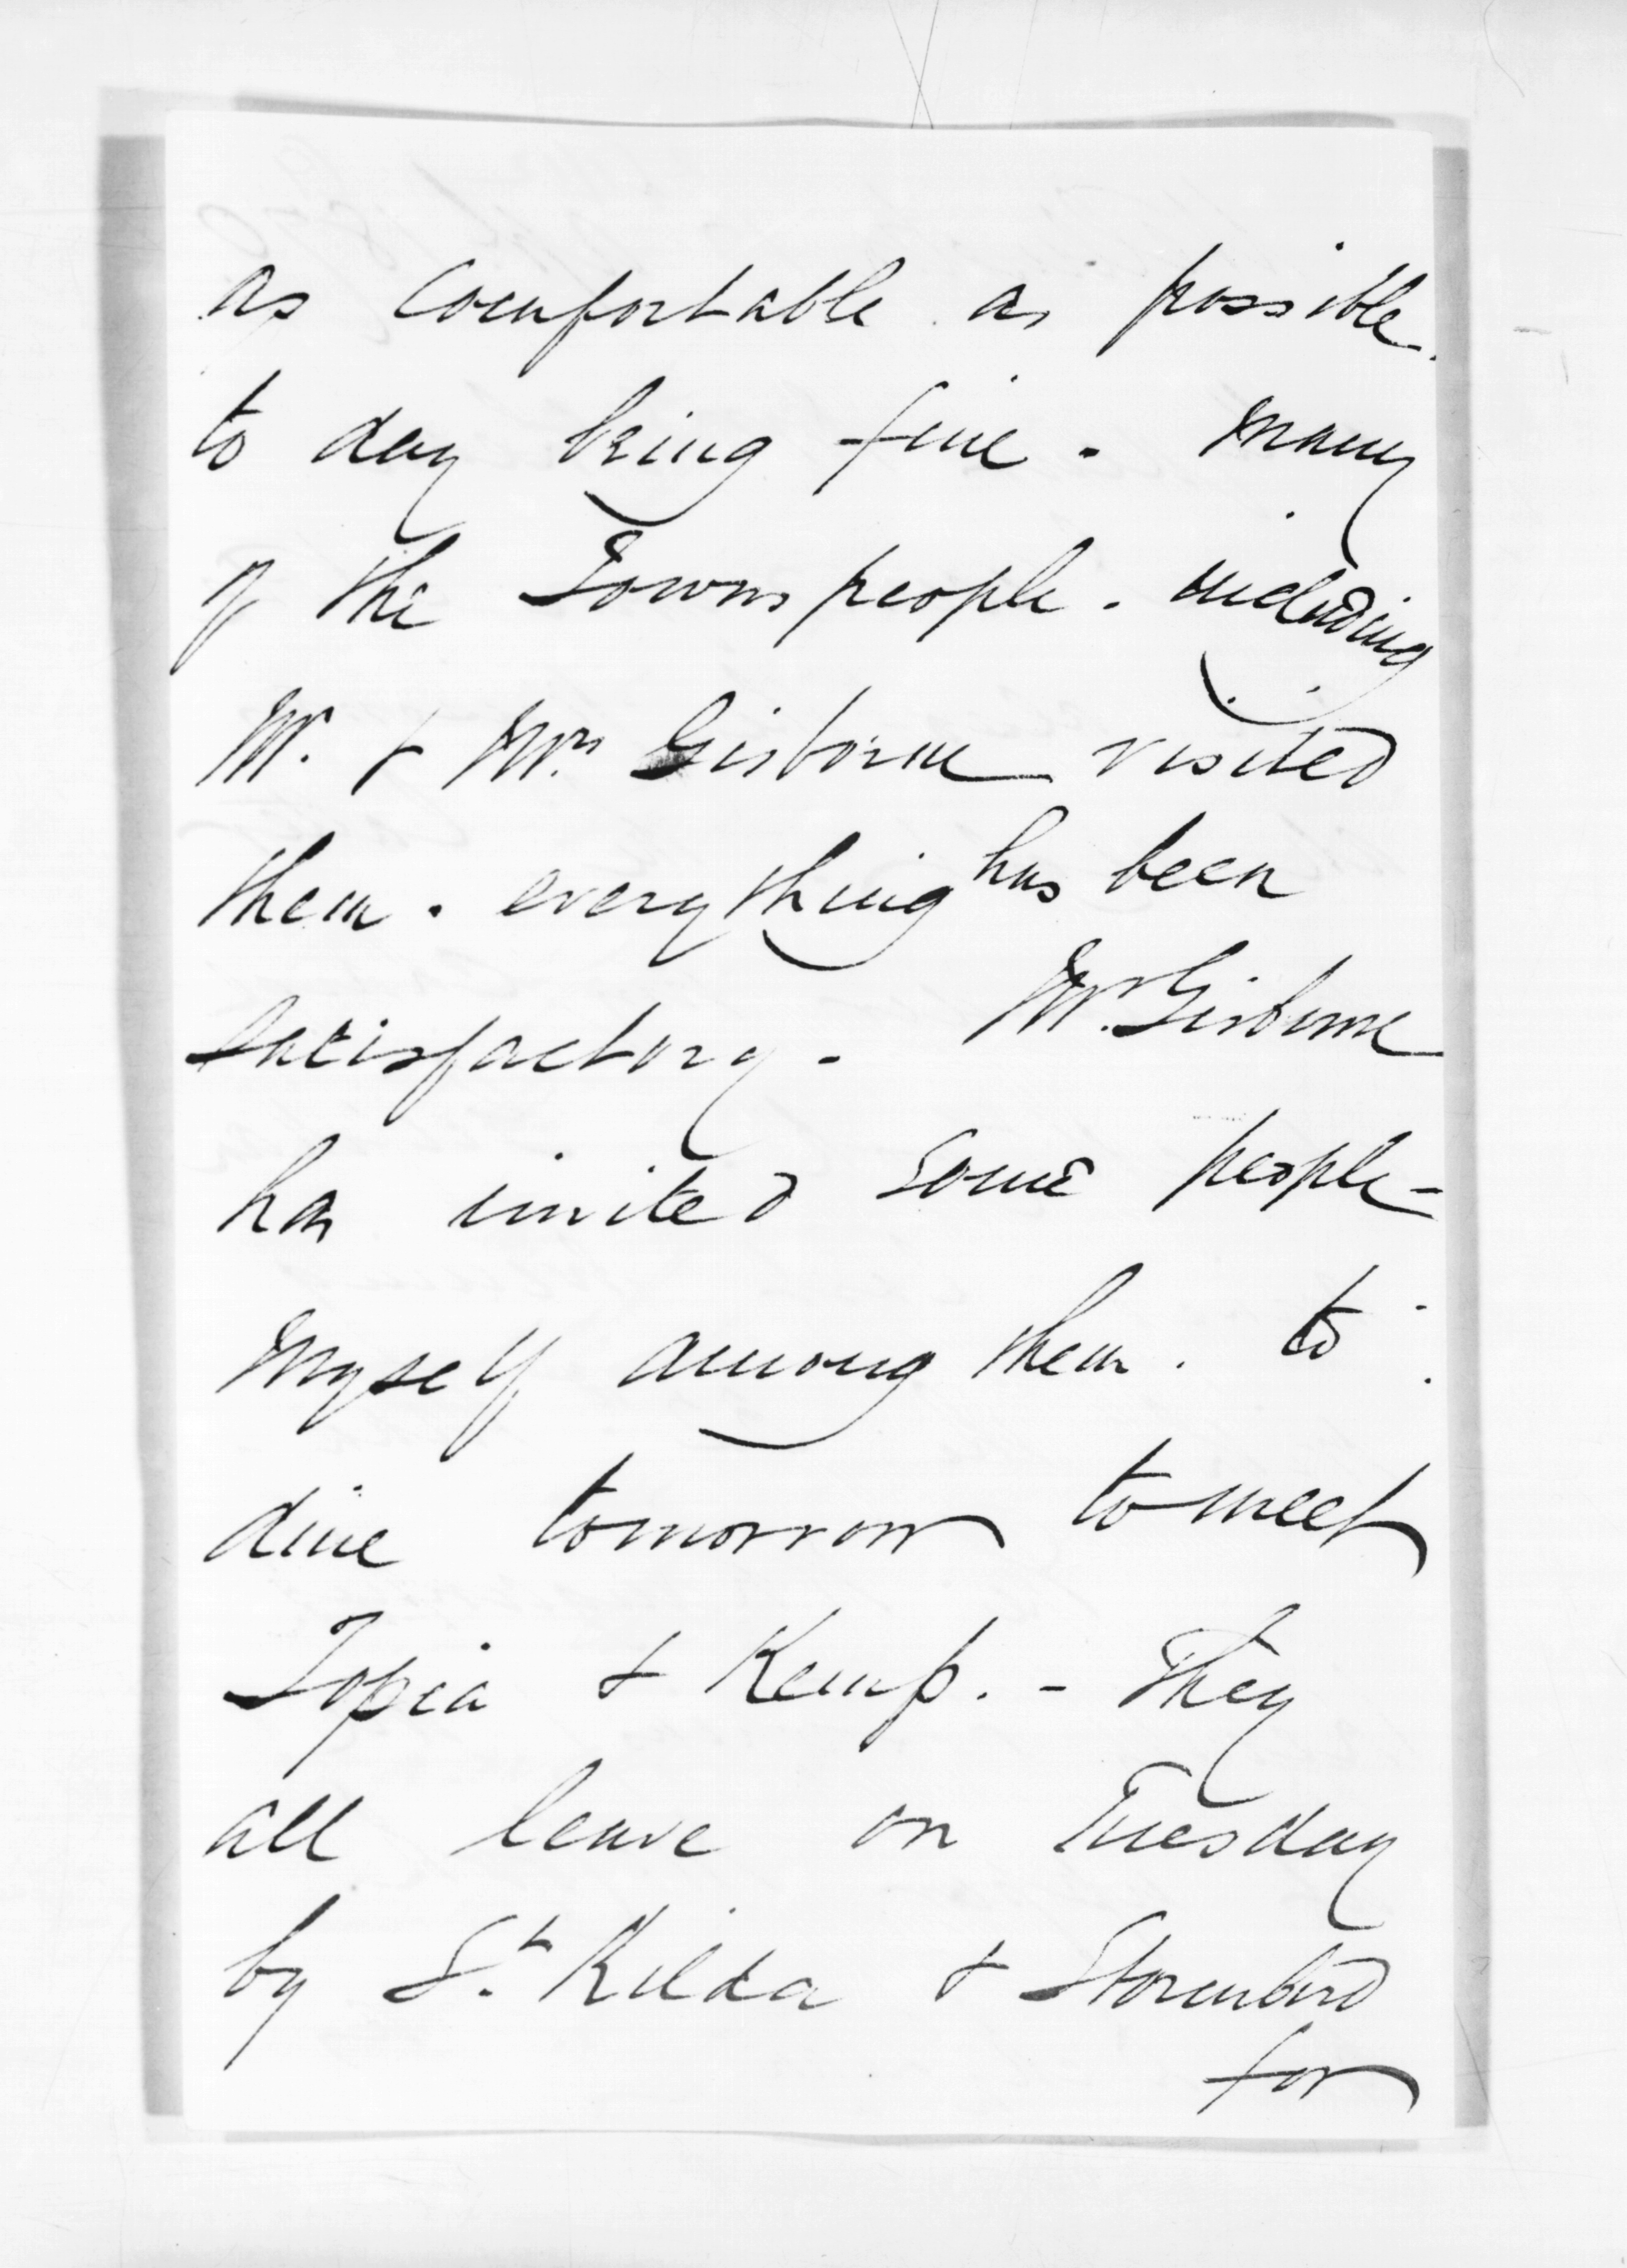 as comfortable as possible.
to day being fine. many
of the Townspeople. including
Mr. & Mrs Gisborne visited
them. everything has been
satisfactory. Mr. Gisborne
has invited some people -
myself among them. to
dine tomorrow to meet
Topia & Kemp. - They
all leave on Tuesday
by St. Kilda & Stormbird
for